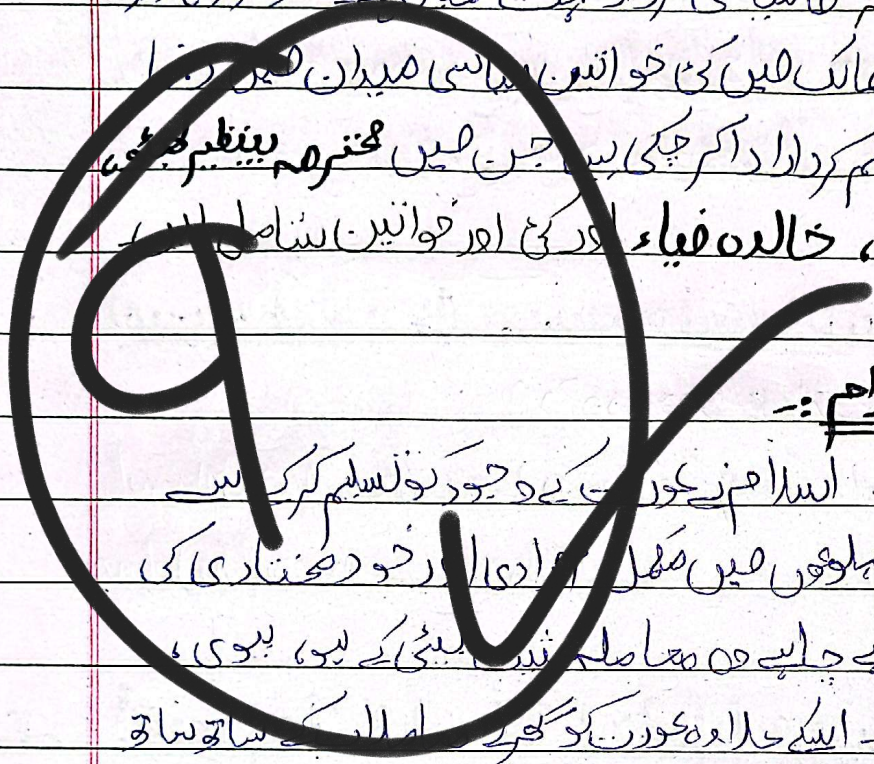 ممالک میں کئ خواتین سیاسی میدان میں
اہم کردار ادا کر چکی ہیں جن میں محترمہ بینظیر بھٹو،
، خالدہ ضیاء اور کئ اور خواتین شامل ہیں۔
:۔
اسلام نے عورت کے وجود کو تسلیم کر کے اسے
پہلوؤں میں مکمل آزادی اور خود مختاری کی
چاہے وہ معاملہ بیٹی کے ہو، بیوی،
۔ اسکے علاوہ عورت کو گھر کے ساتھ ساتھ
9